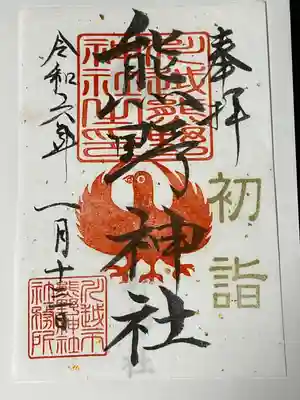 奉拝
初詣
熊野神社
川越熊野
神社之印
令和六年
一月十三日
川越市
熊野神社
社務所